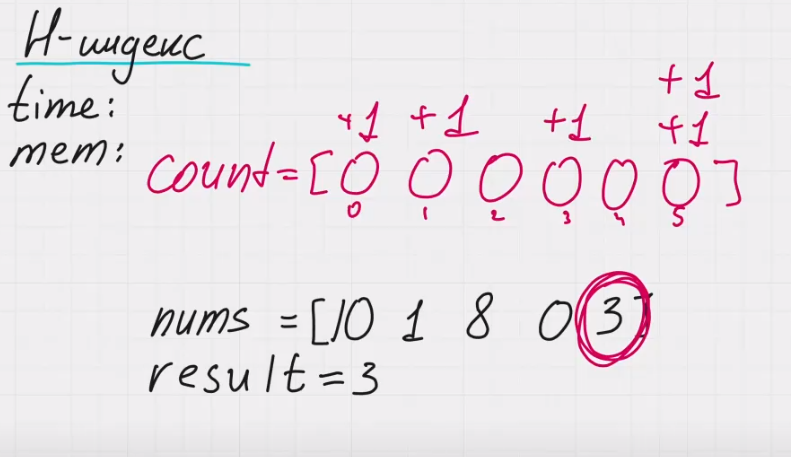 H-индекс
time:
mem:
+1 +1 +1 +1
+1
count=[0 0 0 0 0 0]
0 1 2 3 4 5
nums =[10 1 8 0 3]
result=3